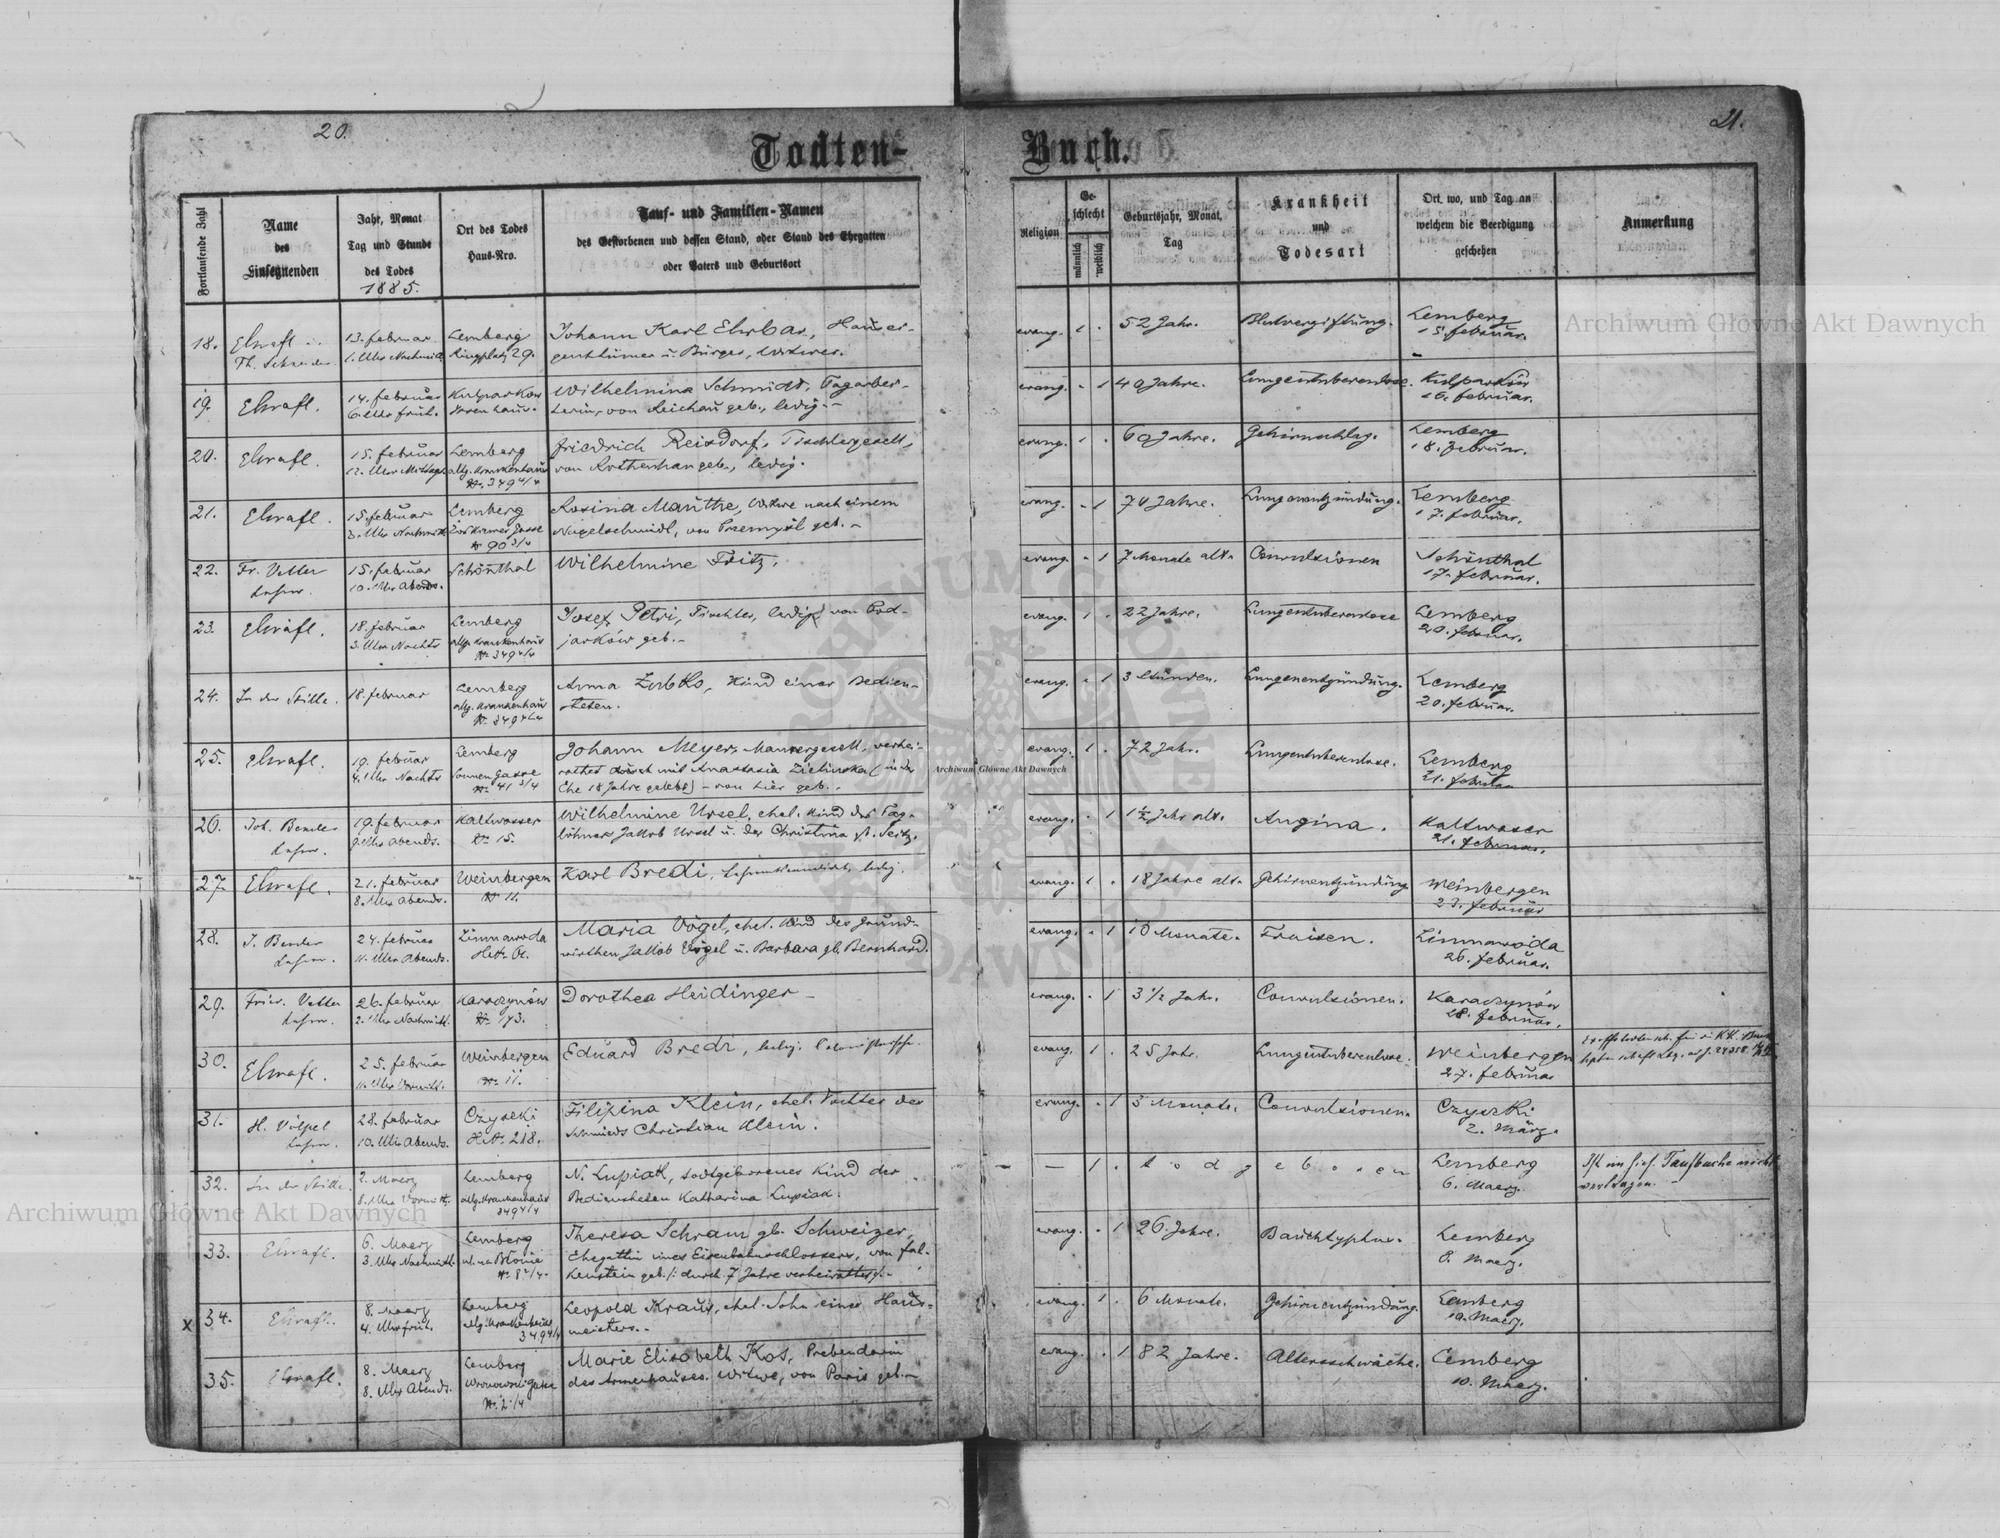 20.
21.
Todten-
Buch.
Fortlaufende Zahl
Name
des
Einsegnenden
Jahr, Monat
Tag und Stunde
des Todes
1885.
Ort des Todes
Haus-Nro.
Tauf- und Familien-Namen
des Gestorbenen und dessen Stand, oder Stand des Ehegatten
oder Vaters und Geburtsort
Religion
Ge-
schlecht
männlich
weiblich
Geburtsjahr, Monat,
Tag
Krankheit
und
Todesart
Ort, wo, und Tag an
welchem die Beerdigung
geschehen
Anmerkung
18.
13. februar
1. Uhr Nachmitt.
Lemberg
Ringplatz 29.
Johann Karl Ehrbar, Hausei-
genthümer u. Bürger, Witwer.
evang. 1 .
52 Jahr.
Blutvergiftung.
Lemberg
15. februar.
19.
14. februar
6. Uhr früh.
Kulparkow
Irrenhaus.
Wilhelmina Schmidt, Tagarbei-
terin, von Reichau geb., ledig.-
evang. . 1
49 Jahre.
Lungentuberculose.
Kulparków
16. februar.
20.
15. februar
12. Uhr Mittags.
Lemberg
allg. Krankenhaus
Nr. 349 4/4
Friedrich Reisdorf, Tischlergesell,
von Rothenhan geb., ledig.
evang. 1 .
69 Jahre.
Gehirnschlag.
Lemberg
18. Februar.
21.
15. februar
3. Uhr Nachmitt.
Lemberg
Nr 90 3/4
Rosina Mauthe, Witwe nach einem
Nagelschmidt, von Przemyśl geb.-
evang. . 1
74 Jahre.
Lungenentzündung.
Lemberg
17. februar.
22.
Fr. Vetter
Lehrer.
15. februar
10. Uhr Abends.
Schönthal
Wilhelmine Fritz.
evang. . 1
7 Monate alt.
Convulsionen
Schönthal
17. februar.
23.
18. februar
3. Uhr Nachts
Lemberg
allg. Krankenhaus
Nr. 349 4/4
Josef Petri, Tischler, ledig, von Pod-
jarków geb.-
evang. 1 .
22 Jahre.
Lungentuberculose
Lemberg
20. februar.
24.
In der Stille.
18. februar
Lemberg
allg. Krankenhaus
Nr. 349 4/4
Anna Zubko, Kind einer Bedien-
steten.
evang. . 1
3 Stunden.
Lungenentzündung.
Lemberg
20. februar.
25.
19. februar
4. Uhr Nachts
Lemberg
Sonnengasse
Nr. 41 3/4
Johann Meyer, Maurergesell, verhei-
rathet mit Anastasia Zielinska (in der
Ehe 18 Jahre gelebt) - von hier geb.-
evang. 1 .
72 Jahr.
Lungentuberculose.
Lemberg
21. februar
26.
Joh. Bender
Lehrer.
19. februar
9. Uhr Abends.
Kaltwasser
Nr. 15.
Wilhelmine Ursel, ehel. Kind des Tag-
löhners Jakob Ursel u. der Christina gb. Seitz.
evang. . 1
1½ Jahr alt.
Angina.
Kaltwasser
21. februar.
27.
21. februar
8. Uhr Abends.
Weinbergen
Nr. 11.
Karl Bredi, ledig.
evang. 1 .
18 Jahre alt.
Gehirnentzündung
Weinbergen
23. februar
28.
J. Bender
Lehrer.
24. februar
11. Uhr Abends.
Zimnawoda
Maria Vogel, ehel. Kind des Grund-
wirthen Jakob Vogel u. Barbara gb. Bernhard.
evang. . 1
10 Monate.
Fraisen.
Zimnawoda
26. februar.
29.
Friedr. Vetter
Lehrer.
26. februar
2. Uhr Nachmitt.
Karaczynów
Nr. 173.
Dorothea Heidinger -
evang. . 1
3 1/2 Jahr.
Convulsionen.
Karaczynów
28. februar.
30.
25. februar
11. Uhr Vormitt.
Weinbergen
Nr. 11.
Eduard Bredi, ledig,
evang. 1 .
25 Jahr.
Lungentuberculose.
Weinbergen
27. februar
31.
H. Völpel
Lehrer.
28. februar
10. Uhr Abends.
Czyszki
218.
Filipina Klein, ehel. Tochter des
Schmieds Christian Klein.
evang. . 1
3 Monate.
Convulsionen.
Czyszki
2. März.
32.
In der Stille
2. Maerz
8. Uhr Vormitt.
Lemberg
allg. Krankenhaus
349 4/4
N. Lupiak, todtgeborenes Kind der
Bediensteten Katharina Lupiak.
- 1 .
todgeboren
Lemberg
6. Maerz.
Ist im hies. Taufbuche nicht
33.
6. Maerz
3. Uhr Nachmitt.
Lemberg
ul. na Błonie
Nr. 8 2/4.
Theresa Schram gb. Schweizer,
Ehegattin eines Eisenbahnschlossers, von Fal-
kenstein geb. /: durch 7 Jahre verheirathet :/-
evang. . 1
26 Jahre.
Bauchtyphus.
Lemberg
8. Maerz.
x
34.
8. Maerz
4. Uhr früh.
Lemberg
allg. Krankenhaus
349 4/4
Leopold Kraus, ehel. Sohn eines Haus-
meisters.-
evang. 1 .
6 Monate.
Gehirnentzündung.
Lemberg
10. Maerz.
35.
8. Maerz
8. Uhr Abends.
Lemberg
Nr. 2 /4
Marie Elisabeth Kos, Prebendarin
des Armenhauses. Witwe, von Paris geb.-
evang. . 1
82 Jahre.
Altersschwäche.
Lemberg
10. Maerz.
Archiwum Główne Akt Dawnych
Archiwum Główne Akt Dawnych
Archiwum Główne Akt Dawnych